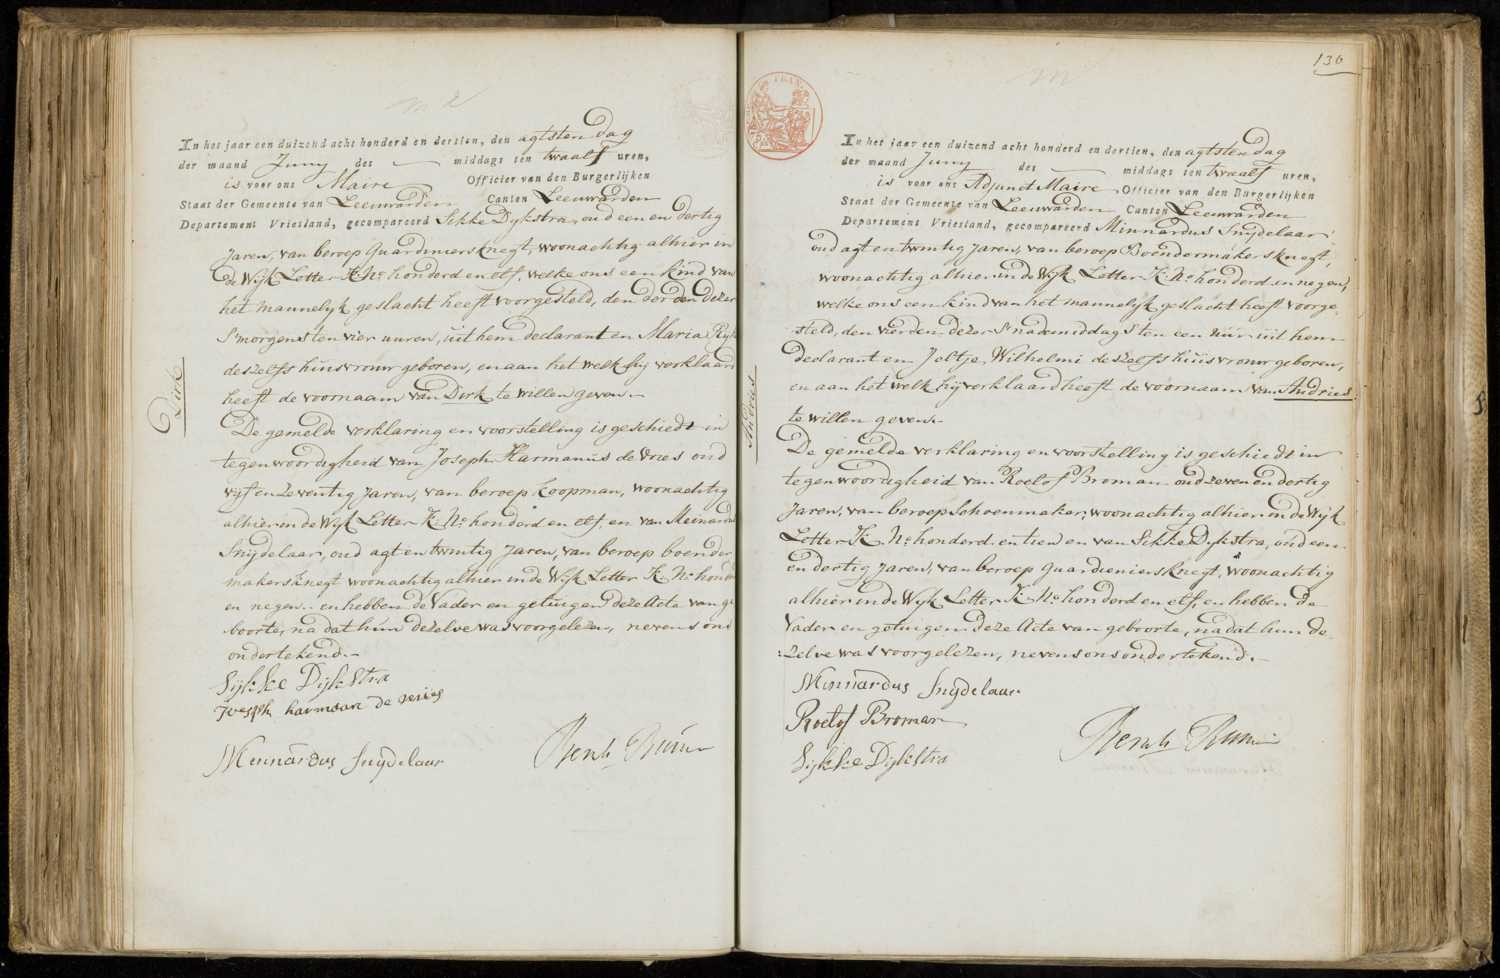 In het jaar een duizend acht honderd en dertien, den agtsten dag
der maand Juny des middags ten twaalf uren,
is voor ons Maire Officier van den Burgerlijken
Staat der Gemeente van Leeuwarden Canton Leeuwarden
Departement Vriesland, gecompareerd Sikke Dijkstra, oud een en dertig
Jaren, van beroep Guardeniersknegt, woonachtig alhier in
de Wijk Letter K. No honderd en elf, welke ons een kind van
het mannelijk geslacht heeft voorgesteld, den derden dezer
S'morgens ten vier uuren, uit hem declarant en Maria
deszelfs huisvrouw geboren, en aan het welk hij verklaard
heeft de voornaam van Dirk te willen geven.
Dirk
De gemelde verklaring en voorstelling is geschiedt in
tegenwoordigheid van Joseph Harmanus de Vries oud
vijf en zeventig Jaren, van beroep Koopman, woonachtig
alhier in de Wijk Letter K. No honderd en elf, en van Meinardus
Snijdelaar, oud agt en twintig Jaren, van beroep boender
makersknegt woonachtig alhier in de Wijk Letter K No honderd
en negen en hebben de Vader en getuigen deze Acte van ge
boorte, na dat hun dezelve was voorgelezen, nevens ons
ondertekend.
Sijkke Dijkstra
Joesph harmaan de vries
Minnardus Snijdelaar
136
In het jaar een duizend acht honderd en dertien, den agtsten dag
der maand Juny des middags ten twaalf uren,
is voor ons Adjunct Maire Officier van den Burgerlijken
Staat der Gemeente van Leeuwarden Canton Leeuwarden
Departement Vriesland, gecompareerd Minnardus Snijdelaar
oud agt en twintig Jaren, van beroep Boendermakersknegt,
woonachtig alhier in de Wijk Letter K. No honderd en negen,
welke ons een kind van het mannelijk geslacht heeft voorge-
steld, den vierden dezer S'nademiddags ten een uur uit hem
declarant en Jeltje Wilhelmi deszelfs huisvrouw geboren,
en aan het welk hij verklaard heeft de voornaam van Andries
te willen geven.
Andries
De gemelde verklaring en voorstelling is geschiedt in
tegenwoordigheid van Roelof Broman oud zeven en dertig
Jaren, van beroep Schoenmaker, woonachtig alhier in de Wijk
Letter K No honderd en tien en van Sikke Dijkstra, oud een
en dertig Jaren, van beroep Guardeniersknegt, woonachtig
alhier in de Wijk Letter K No honderd en elf, en hebben de
Vader en getuigen deze Acte van geboorte, na dat hun de
zelve was voorgelezen, nevens ons ondertekend.
Minnardus Snijdelaar
Roelof Broman
Sijkke Dijkstra